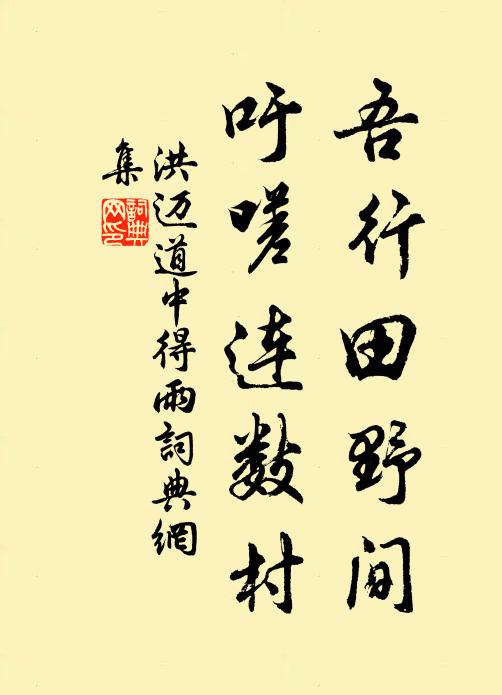 吾行田野间
吁嗟连数村
洪迈道中得雨詞典網
集
詞典
网印